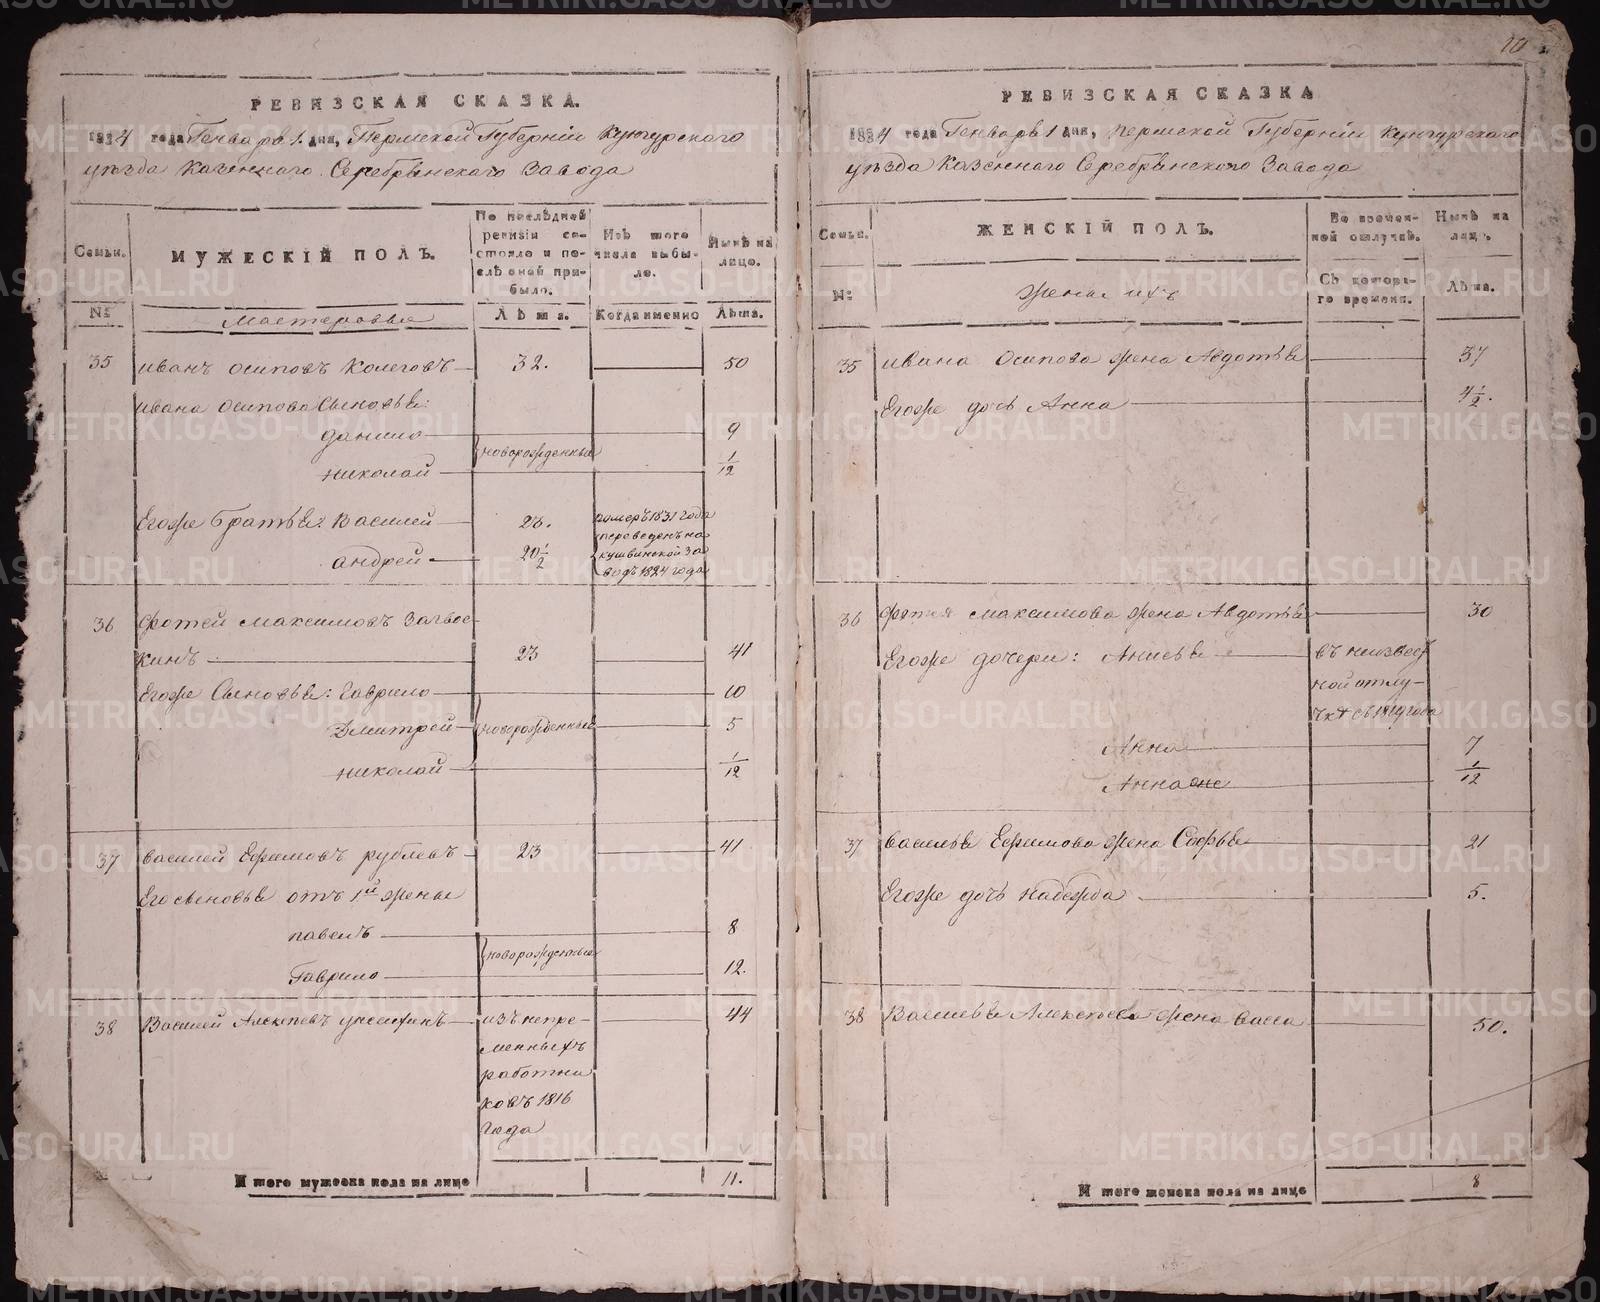 10
РЕВИЗСКАЯ СКАЗКА.
1834 года Генваря 1. дня, Пермской Губернiи Кунгурского
уѣзда казеннаго Серебрянского Завода
Семьи.
МУЖЕСКIЙ ПОЛЪ.
По послѣдней ревизiи состояло и послѣ оной прибыло.
Изъ того числа выбыло.
Нынѣ на лицо.
№
Мастеровые
Лѣта.
Когда именно
Лѣта.
35 Иванъ Осиповъ Колеговъ 32. 50
Ивана Осипова Сыновья:
Данило 9
новорожденные
Николай 1/12
Егоже братья: Василей 23. померъ 1831 года
Андрей 20 1/2 переведенъ на
кушвинской за
водъ 1824 года
36 Фотей Максимовъ
кинъ 23 41
Егоже Сыновья: Гаврило 10
Дмитрей новорожденные 5
Николай 1/12
37 Василей Ефимовъ Рублевъ 23 41
Его сыновья отъ 1й жены
Павелъ 8
новорожденные
Гаврило 12.
38 Василей Алексѣевъ 44
изъ непре-
менныхъ
работни
ковъ 1816
года
Итого мужеска пола на лицо 11.
РЕВИЗСКАЯ СКАЗКА
1834 года Генваря 1 дня, Пермской Губернiи Кунгурскаго
уѣзда Казеннаго Серебрянского Завода
Семьи.
ЖЕНСКIЙ ПОЛЪ.
Во временной отлучкѣ.
Нынѣ на лицо.
№
Жены ихъ
Съ котораго времени.
Лѣта.
35 Ивана Осипова жена Авдотья 37
Егоже дочь Анна 4 1/2.
36 Фотея Максимова жена Авдотья 30
Егоже дочери: Анисья въ неизвест
ной отлу-
чкѣ съ 1819 года
Анна 7
Анна 1/12
37 Василья Ефимова жена Софья 21
Егоже дочь Надежда 5.
38 Василья Алексѣева жена Васса 50.
Итого женска пола на лицо 8
METRIKI.GASO-URAL.RU